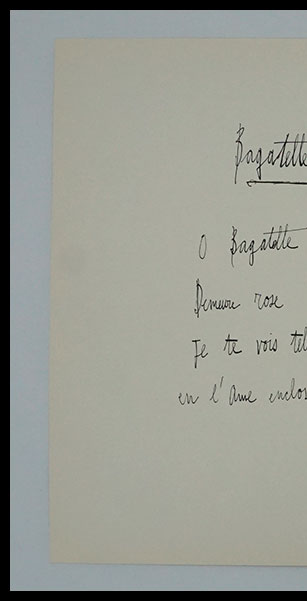 Bagatelle
O Bagatelle
Demeure rose
Je te vois tel
en l'Ame enclos